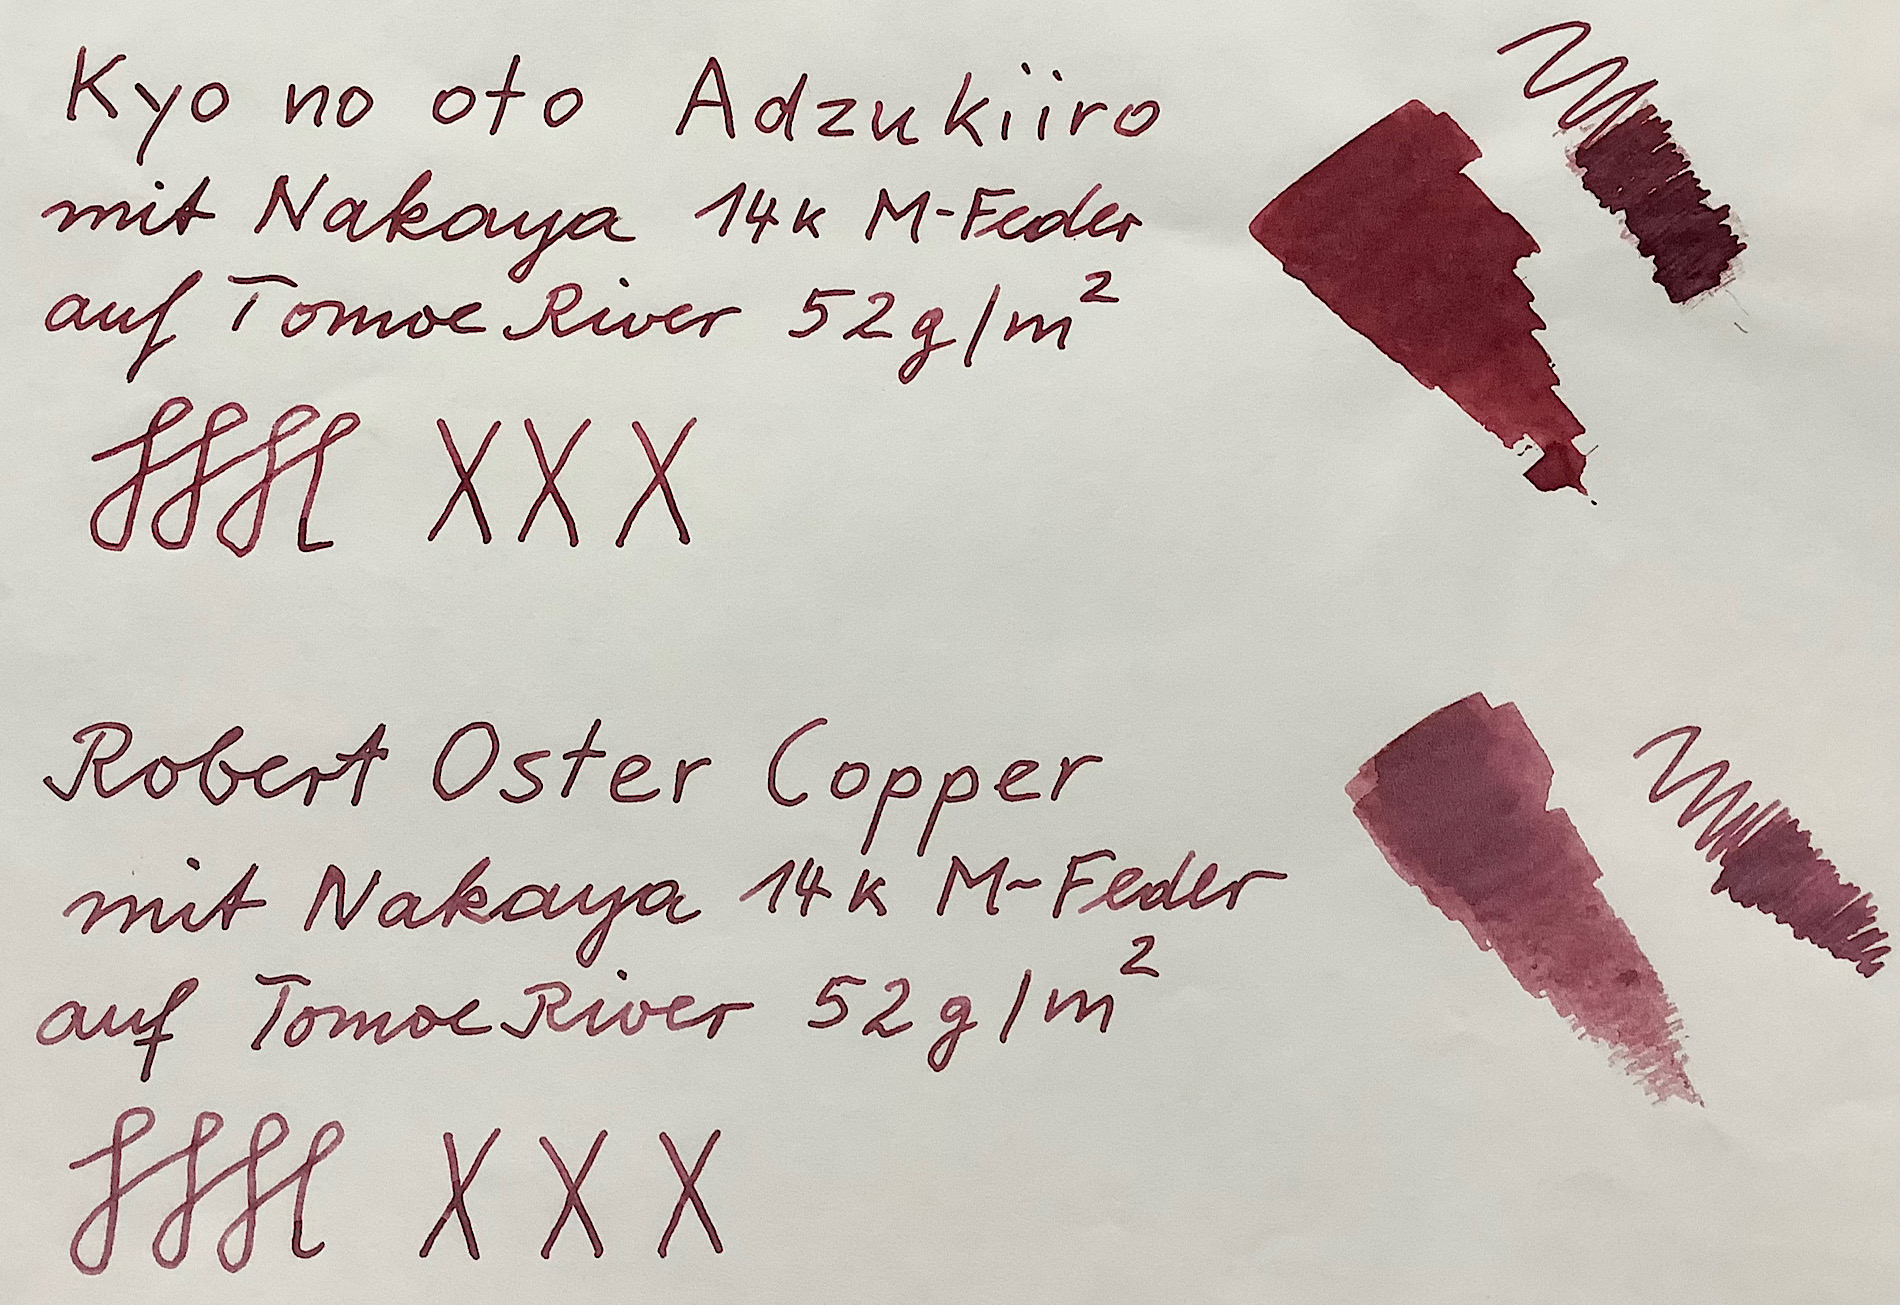 Kyo no oto Adzukiiro
mit Nakaya 14k M-Feder
auf Tomoe River 52g/m²
XXX
Robert Oster Copper
mit Nakaya 14k M-Feder
auf Tomoe River 52g/m²
XXX